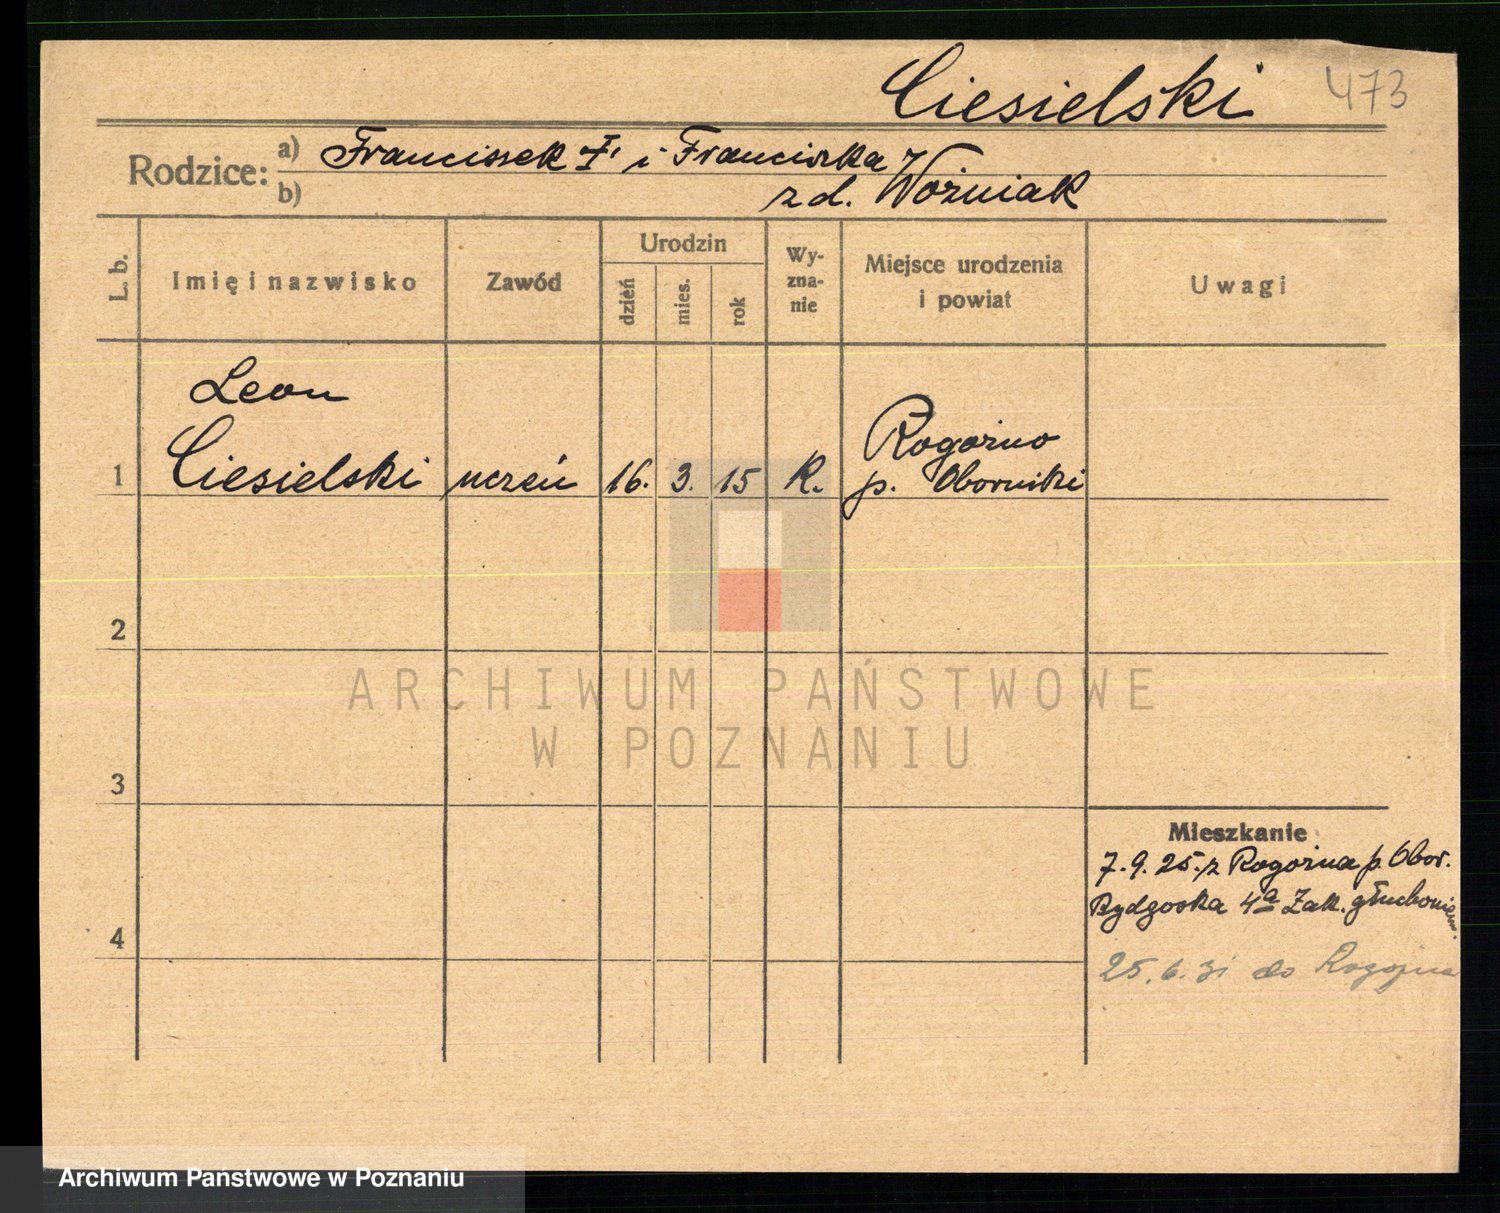 Ciesielski 473
Rodzice: a) Franciszek Ż. i Franciszka
b) zd. Woźniak
L. b. Imię i nazwisko Zawód Urodzin dzień mies. rok Wy-zna-nie Miejsce urodzenia i powiat Uwagi
Leon
1 Ciesielski uczeń 16. 3. 15 R. Rogoźno
p. Oborniki
2
ARCHIWUM PAŃSTWOWE
W POZNANIU
3
Mieszkanie
7.9.25. z Rogoźna p. Obor.
4 Bydgoska 4a Zak. głuchoniem.
25.6.31 do Rogoźna
Archiwum Państwowe w Poznaniu